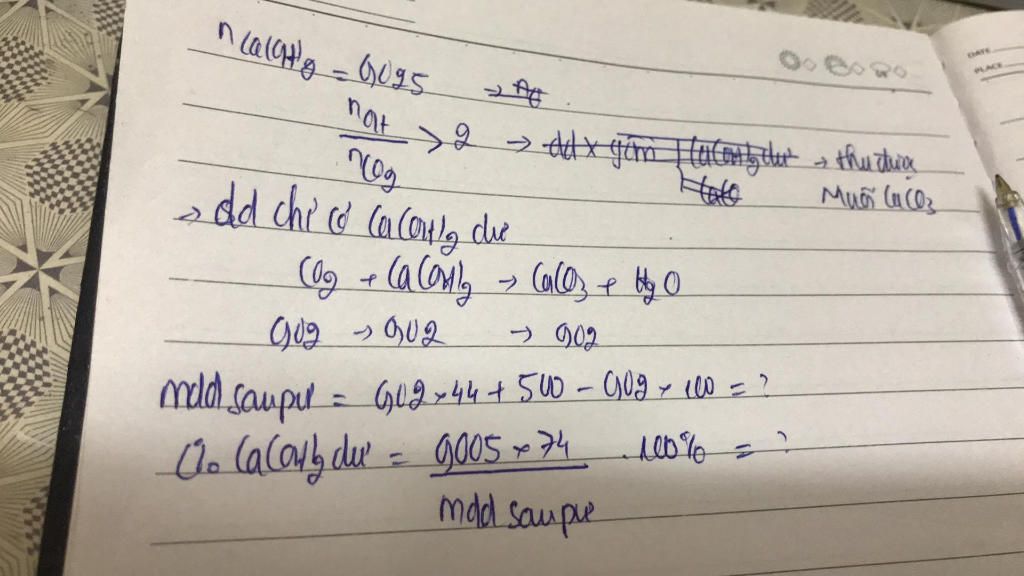 DATE
PLACE
nCa(OH)2 = 0,025 →
nOH / nCO2 > 2 → dd x gồm Ca(OH)2 dư → thu được
CaCO
Muối CaCO3
→ dd chỉ có Ca(OH)2 dư
CO2 + Ca(OH)2 → CaCO3 + H2O
0,02 → 0,02 → 0,02
mdd saupư = 0,02 × 44 + 500 - 0,02 × 100 = ?
C% Ca(OH)2 dư = 0,005 × 74 / mdd saupư . 100% = ?